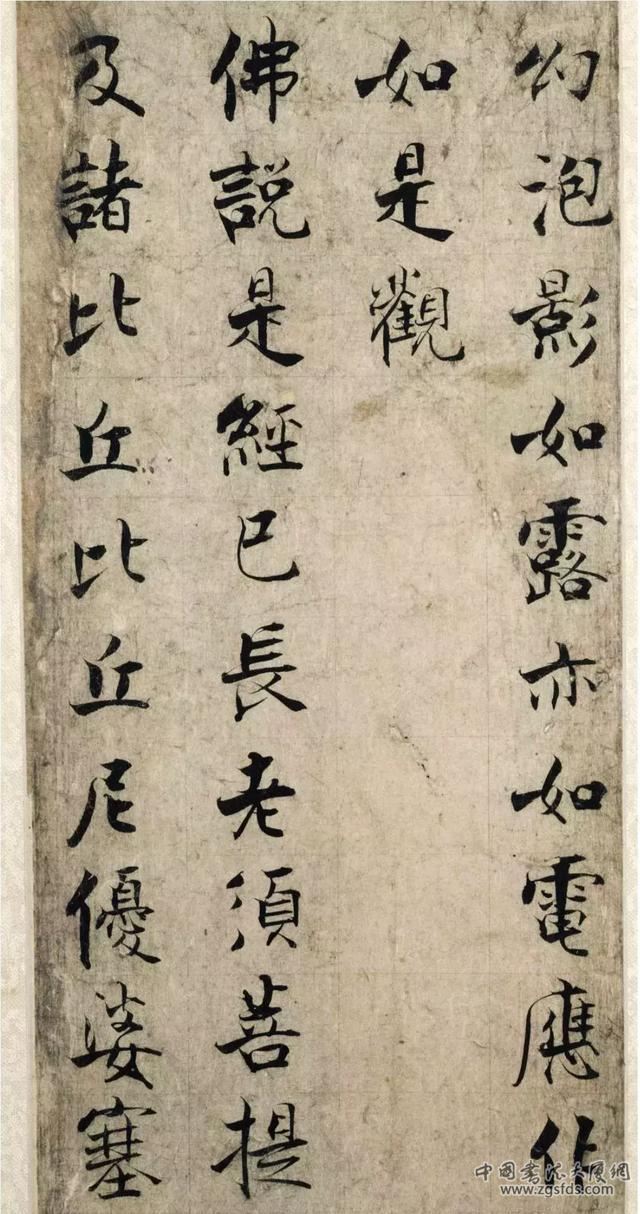 幻泡影如露亦如電應作
如是觀
佛說是經已長老須菩提
及諸比丘比丘尼優婆塞
中国书法大厦网
www.zgsfds.com